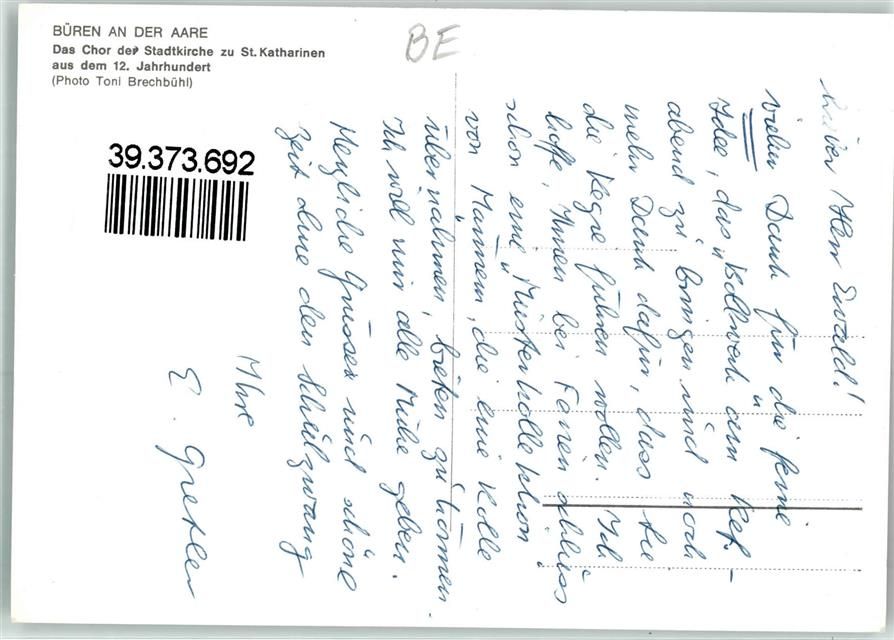 BÜREN AN DER AARE
Das Chor der Stadtkirche zu St. Katharinen
aus dem 12. Jahrhundert
(Photo Toni Brechbühl)
BE
39.373.692
Lieber Herr Ewald!
vielen Dank für die feine
Idee, das "Bollwerk" am Ref-
abend zu bringen und noch
mehr Dank dafür, dass Sie
die Regie führen wollen. Ich
hoffe, Ihnen bei Ferienschluss
schon eine "Musterkollektion"
von Männern, die eine Rolle
übernähmen, bieten zu können.
Ich will mir alle Mühe geben.
Herzliche Grüsse und schöne
Zeit ohne den Schulzwang
Ihre
E. Gretler